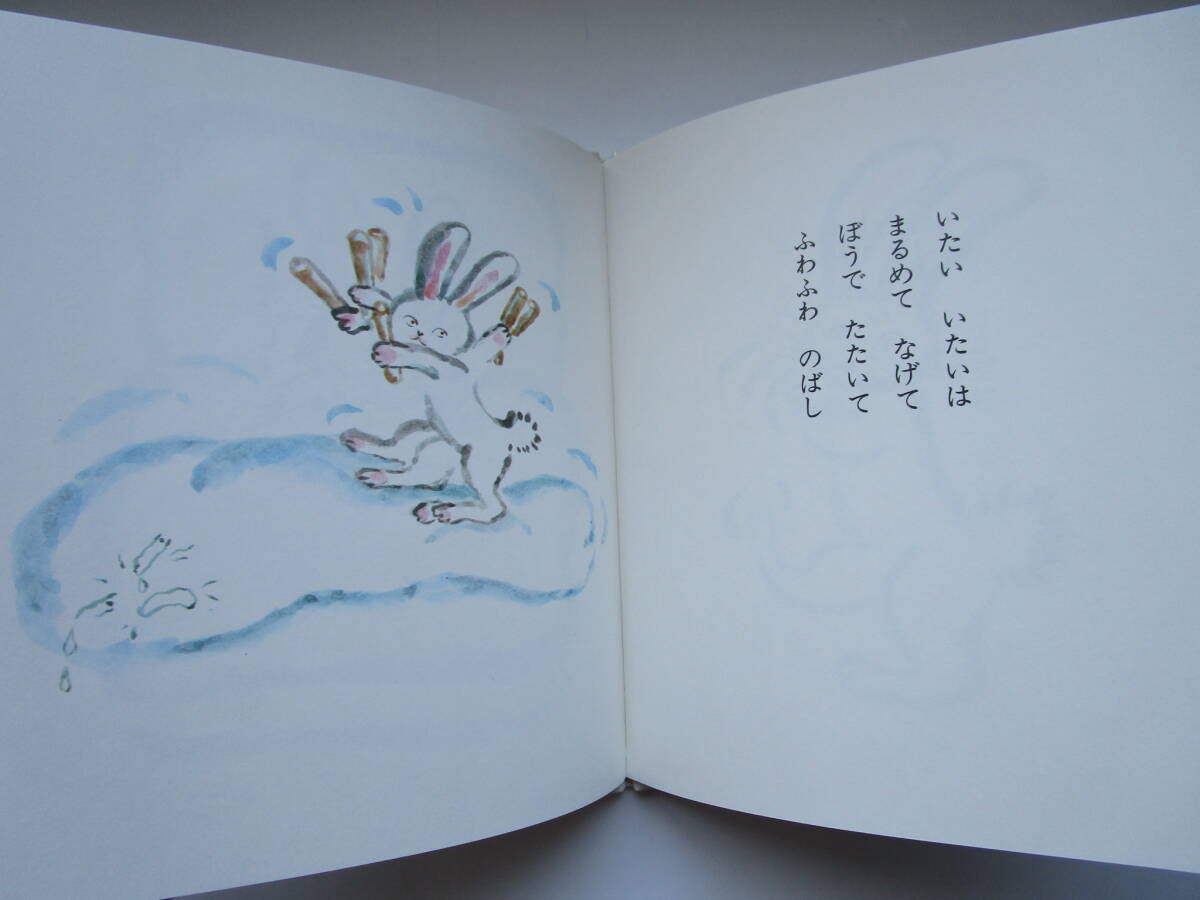 いたい　いたいは
まるめて　なげて
ぼうで　たたいて
ふわふわ　のばし